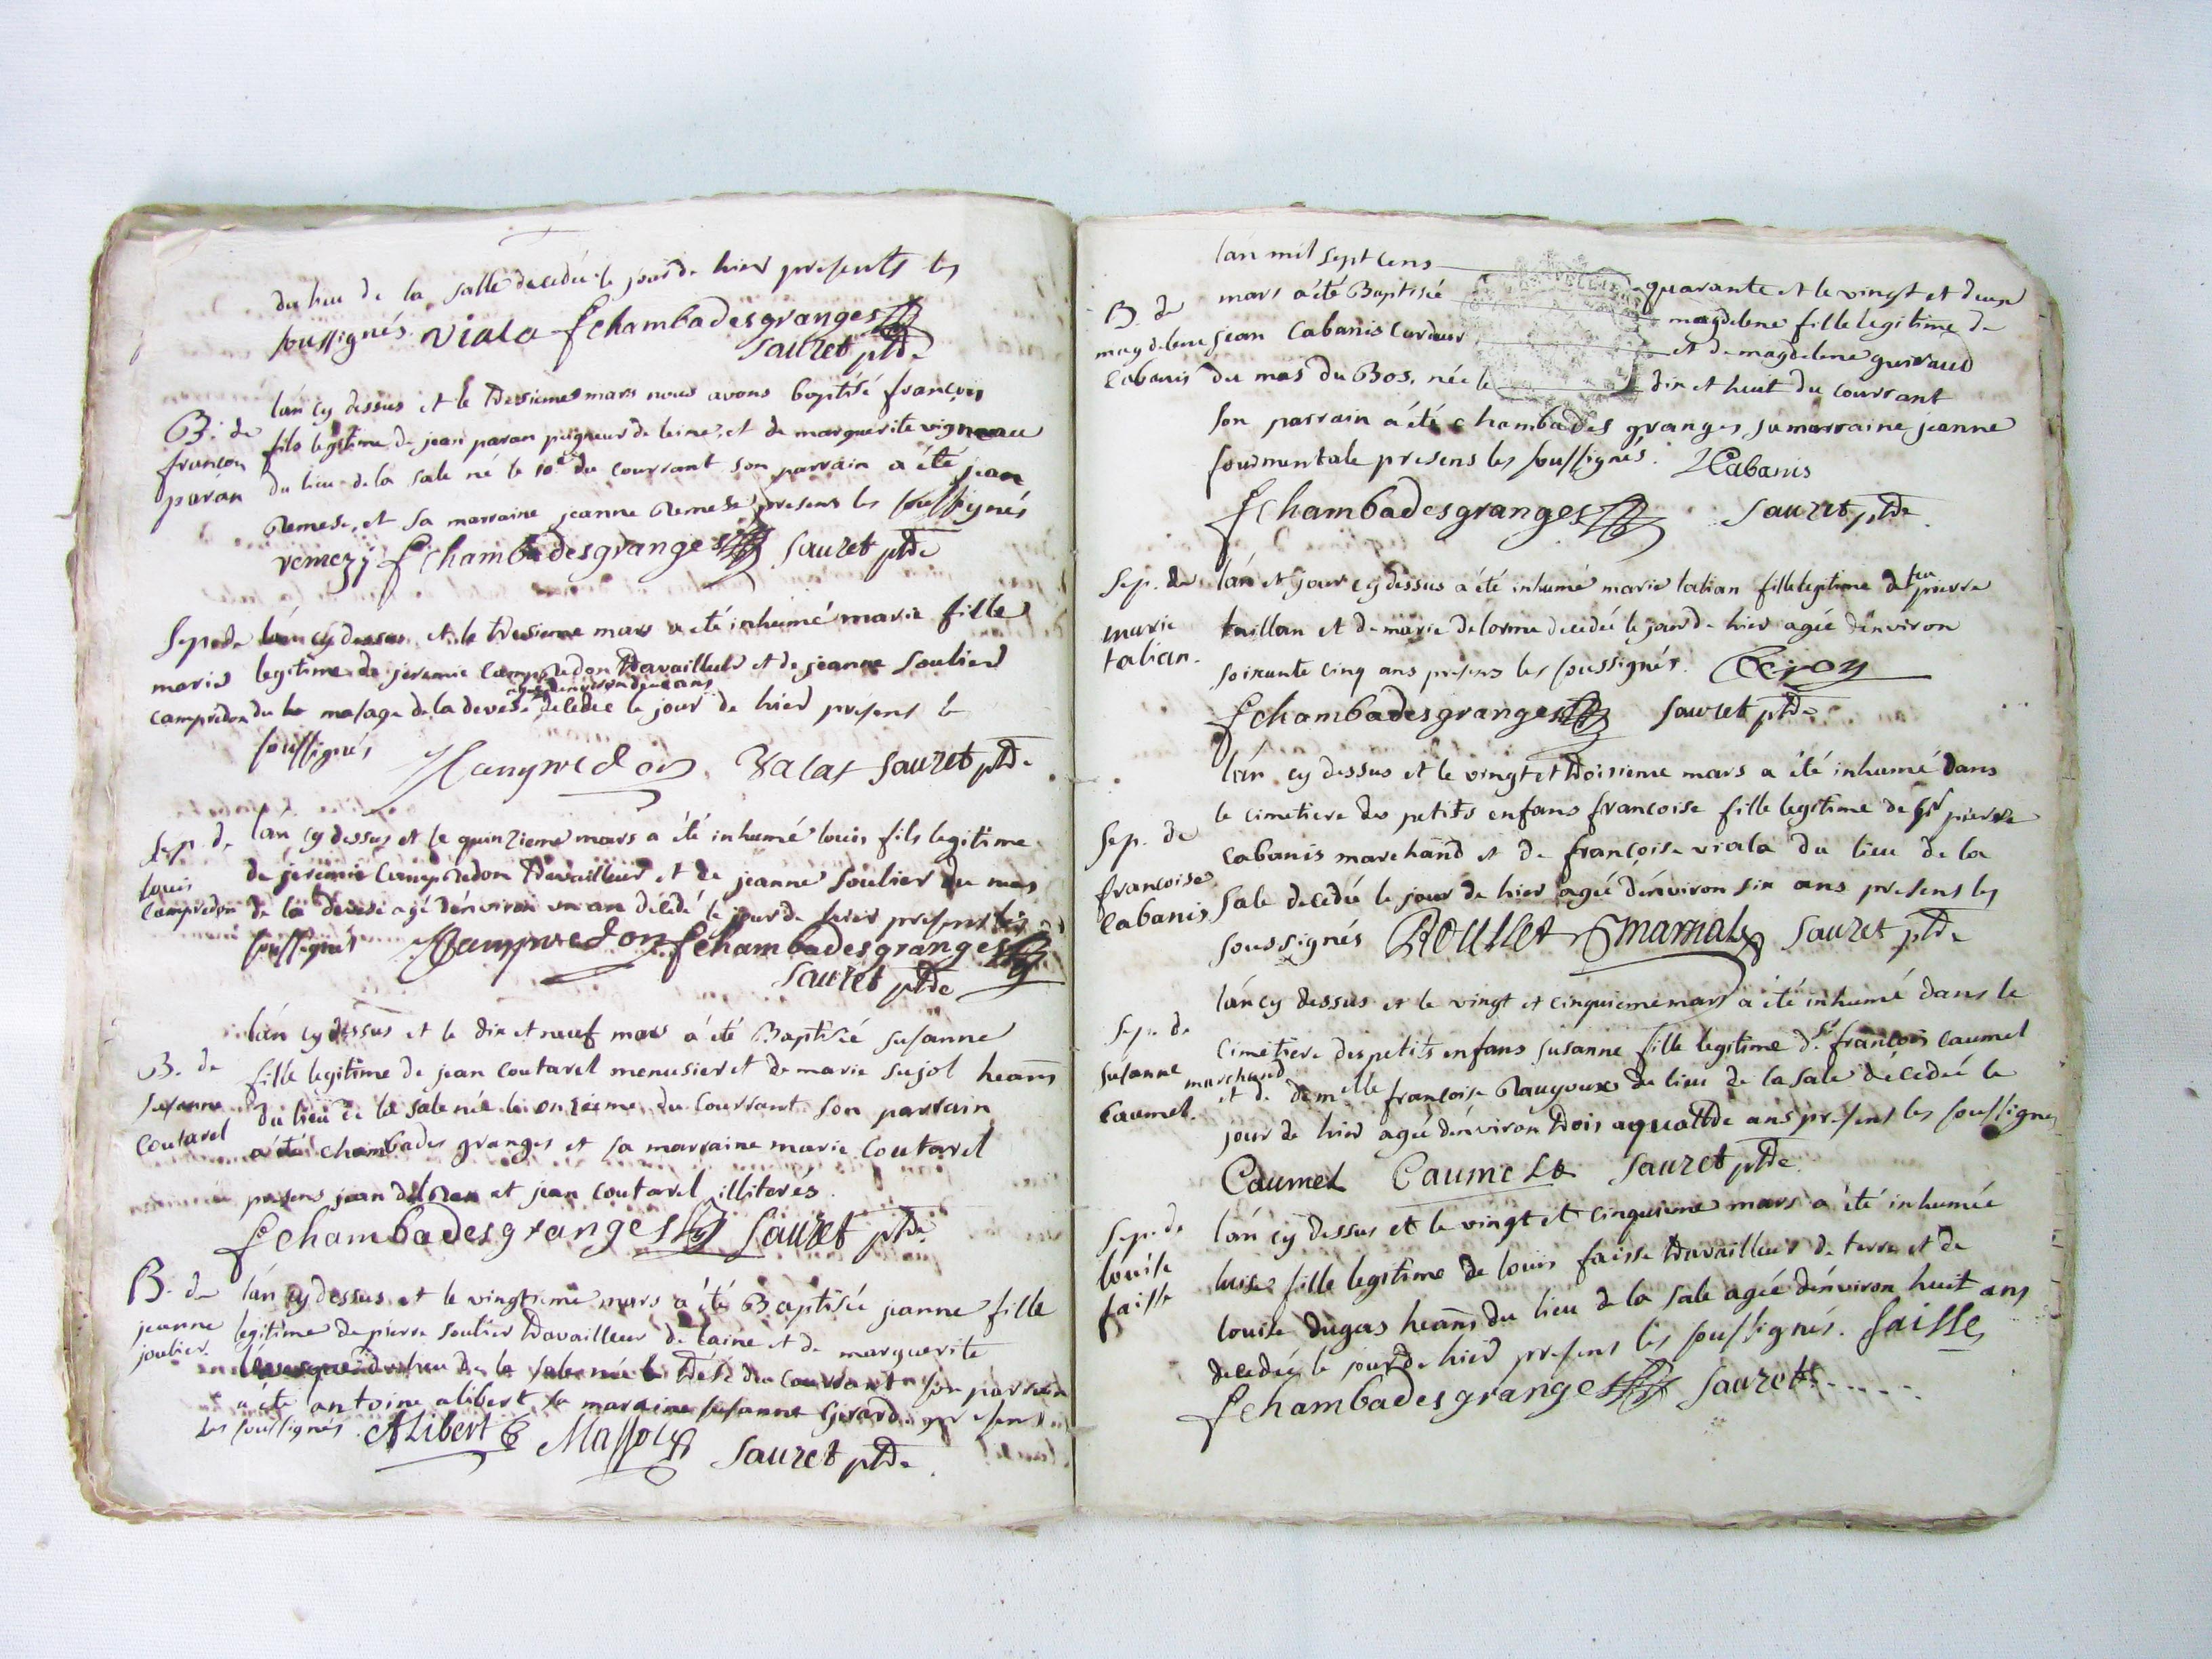 du lieu de la salle decedée le jour de hier presents les
soussignés. viala fchambadesgranges
sauzet ptre
B. de
francois
paran
lan cy dessus et le tresieme mars nous avons baptisé françois
fils legitime de jean paran peigneur de leine, et de marguerite
du lieu de la sale né le 10e du courrant son parrain a été jean
remese, et sa marraine jeanne remese presens les soussignés
remezy fchambadesgranges sauzet ptre
Sep. de
marie
campredon
lan cy dessus et le tresieme mars a été inhumé marie fille
legitime de jeremie campredon travailleur et de jeanne soulier
agée denviron deux ans
du masage de la devese decedée le jour de hier présens le
soussignés Campredon Valat sauzet ptre
Sep. de
louis
campredon
lan cy dessus et le quinzieme mars a été inhumé louis fils legitime
de jeremie campredon travailleur et de jeanne soulier du mas
de la devese agé denviron un an décédé le jour de hier presens les
soussignés Campredon fchambadesgranges
sauzet ptre
B. de
susanne
coutarel
lan cy dessus et le dix et neuf mars a été Baptisée susanne
fille legitime de jean coutarel menusier et de marie sujol heans
du lieu de la sale née le onzieme du courrant son parrain
a été chambades granges et sa marraine marie coutarel
presens jean et jean coutarel illiterés.
fchambadesgranges sauzet ptre
B. de
jeanne
soulier.
lan cy dessus et le vingtieme mars a été Baptisée jeanne fille
legitime de pierre soulier travailleur de laine et de marguerite
du lieu de la sale née le du courrant son parrain
a été antoine alibert, sa maraine susanne Girard presens
les soussignés. ALibert Massot sauzet ptre
lan mil sept cens quarante et le vingt et deux
B. de
magdelene
cabanis
mars a été Baptisée magdelene fille legitime de
jean cabanis cardeur et de magdelene guiraud
du mas du Bos. née le dix et huit du courrant
son parrain a été chambades granges, sa marraine jeanne
soumentale presens les soussignés. Cabanis
fchambadesgranges sauzet ptre.
Sep. de
marie
talian.
lan et jour cy dessus a été inhumé marie talian fille legitime de feu pierre
taillan et de marie delorme decedée le jour de hier agée denviron
soixante cinq ans presens les soussignés.
fchambadesgranges sauzet ptre
Sep. de
francoise
cabanis
lan cy dessus et le vingt et troisieme mars a été inhumé dans
le cimetiere des petits enfans francoise fille legitime de sr pierre
cabanis marchand et de françoise viala du lieu de la
sale decedée le jour de hier agée denviron six ans presens les
soussignés ROUSSET sauzet ptre
Sep. de
susanne
caumel.
lan cy dessus et le vingt et cinquieme mars a été inhumé dans le
cimetiere des petits enfans susanne fille legitime de sr françois caumel
marchand
et de demelle françoise du lieu de la sale décédée le
jour de hier agée denviron trois a quattre ans presens les soussignes
Caumel Caumel sauzet ptre
Sep. de
louise
faisse
lan cy dessus et le vingt et cinquieme mars a été inhumée
luise fille legitime de louis faisse travailleur de terre et de
louise dugas heans du lieu de la sale agée denviron huit ans
decedée le jour de hier presens les soussignés. faisse
fchambadesgranges sauzet